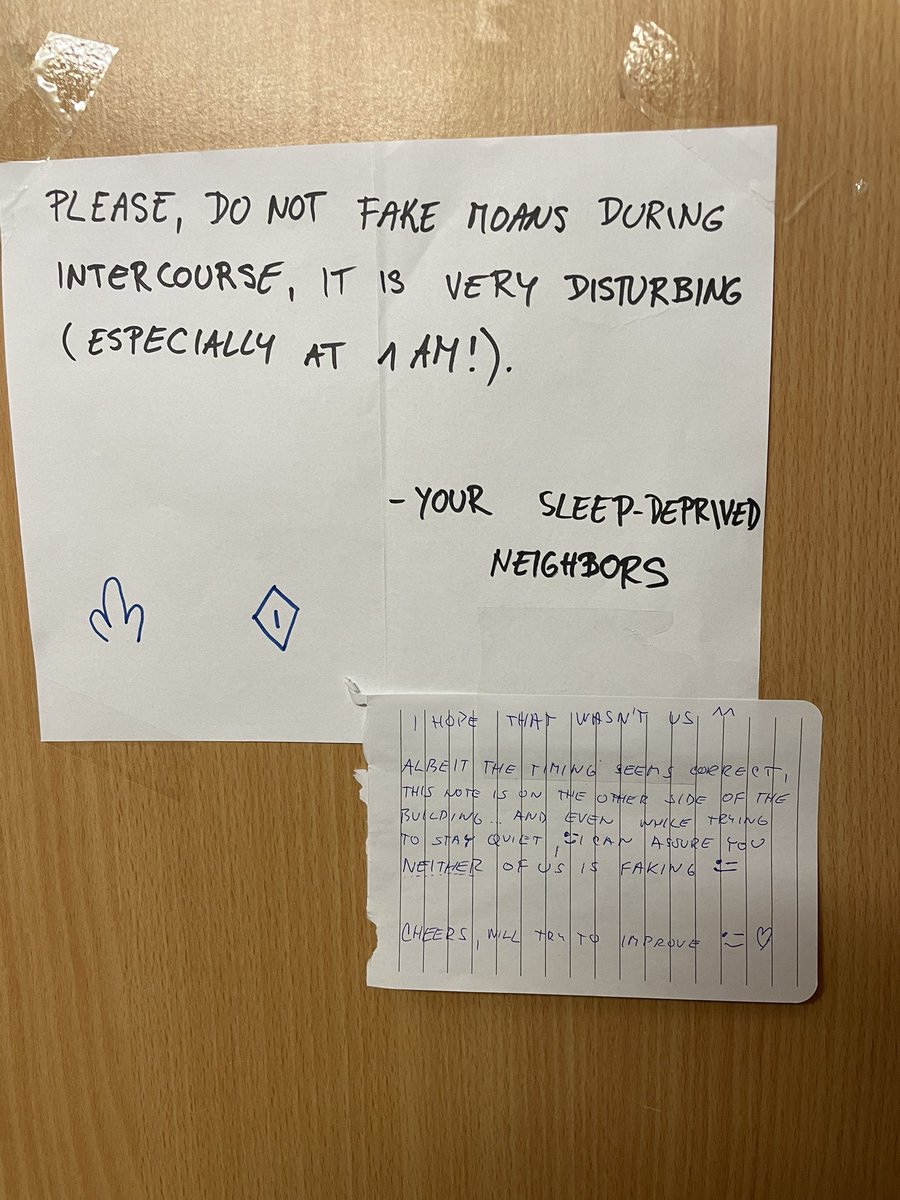 PLEASE, DO NOT FAKE MOANS DURING
INTERCOURSE, IT IS VERY DISTURBING
(ESPECIALLY AT 1 AM!).
- YOUR SLEEP-DEPRIVED
NEIGHBORS
I HOPE THAT WASN'T US ^^
ALBEIT THE TIMING SEEMS CORRECT,
THIS NOTE IS ON THE OTHER SIDE OF THE
BUILDING... AND EVEN WHILE TRYING
TO STAY QUIET, I CAN ASSURE YOU
NEITHER OF US IS FAKING :=
CHEERS, WILL TRY TO IMPROVE := ♡